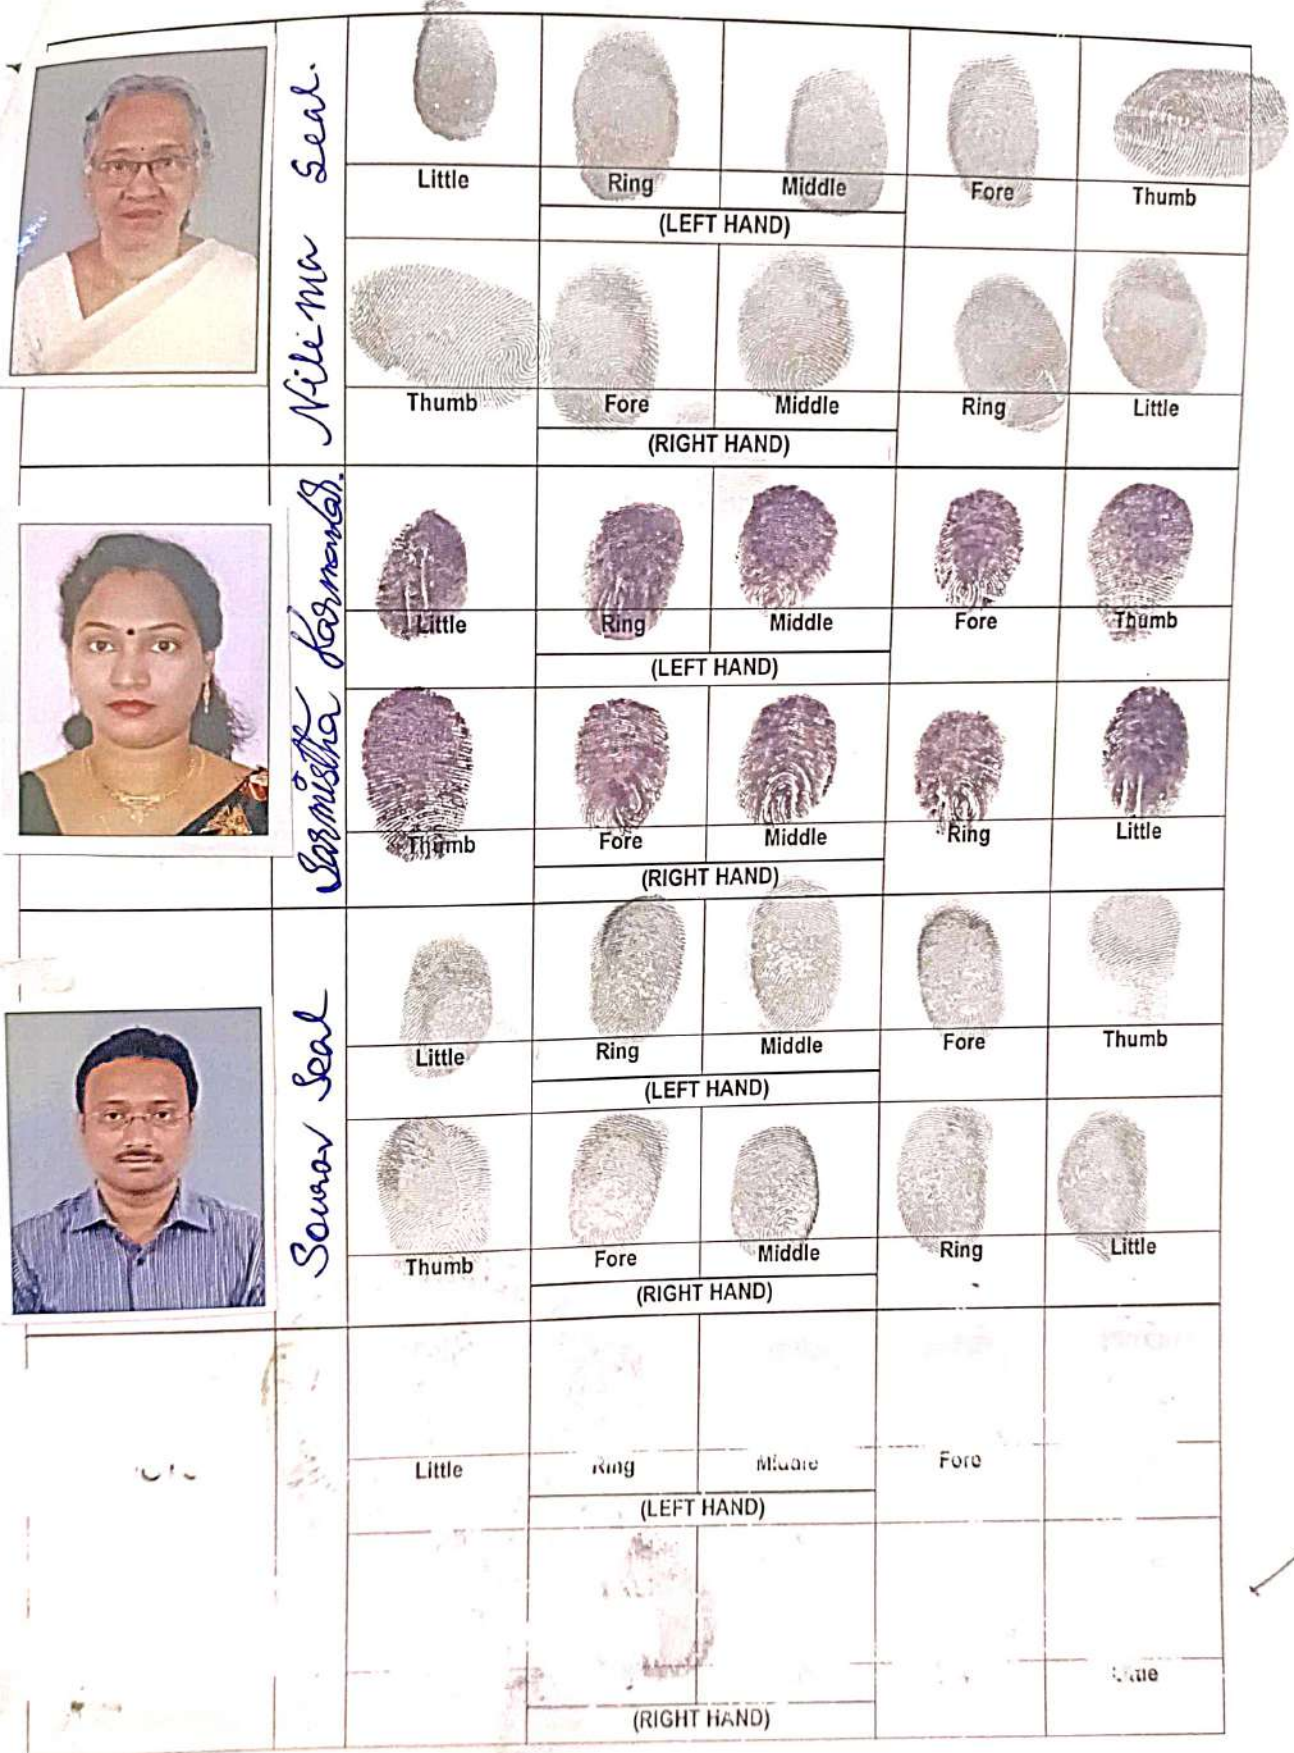 Nilima Seal.
Little Ring Middle Fore Thumb
(LEFT HAND)
Thumb Fore Middle Ring Little
(RIGHT HAND)
Sarmistha Karmakar.
Little Ring Middle Fore Thumb
(LEFT HAND)
Thumb Fore Middle Ring Little
(RIGHT HAND)
Sourav Seal
Little Ring Middle Fore Thumb
(LEFT HAND)
Thumb Fore Middle Ring Little
(RIGHT HAND)
Little Ring Middle Fore
(LEFT HAND)
Little
(RIGHT HAND)